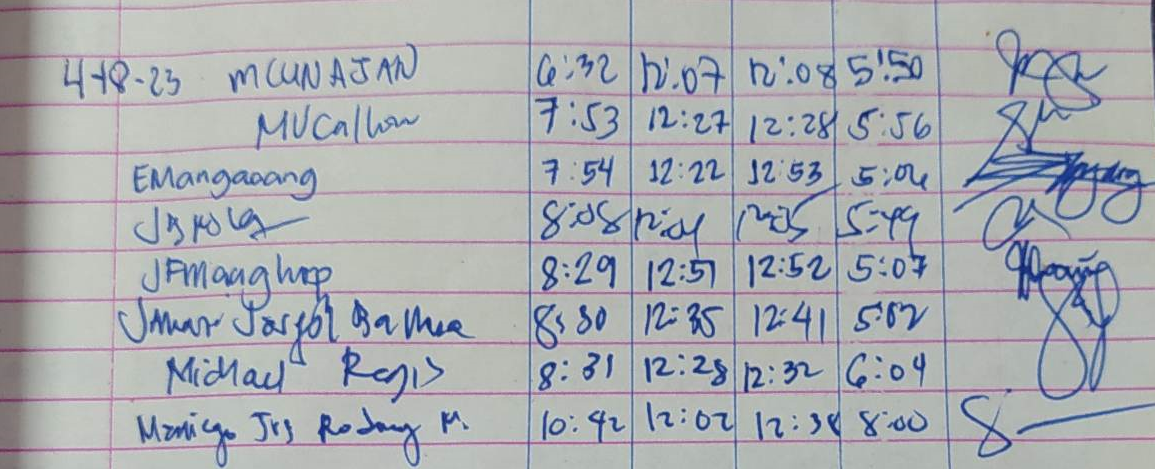 4-18-23 MCUNAJAN 6:32 12:07 12:08 5:50
MVCallow 7:53 12:27 12:28 5:56
EMangaoang 7:54 12:22 12:53 5:04
8:08 12:04 12:05 5:49
JFManghop 8:29 12:51 12:52 5:07
8:30 12:35 12:41 5:02
Michael Regis 8:31 12:28 12:32 6:04
Jrs Rodney M. 10:42 12:02 12:38 8:00